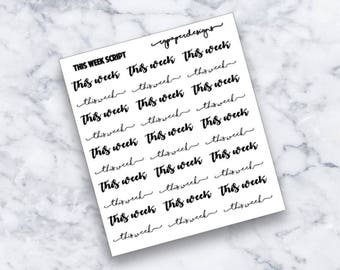 THIS WEEK SCRIPT
This week This week This week
this week this week this week
This week This week This week
this week this week this week
This week This week This week
this week this week this week
This week This week This week
this week this week this week
This week This week This week
this week this week this week